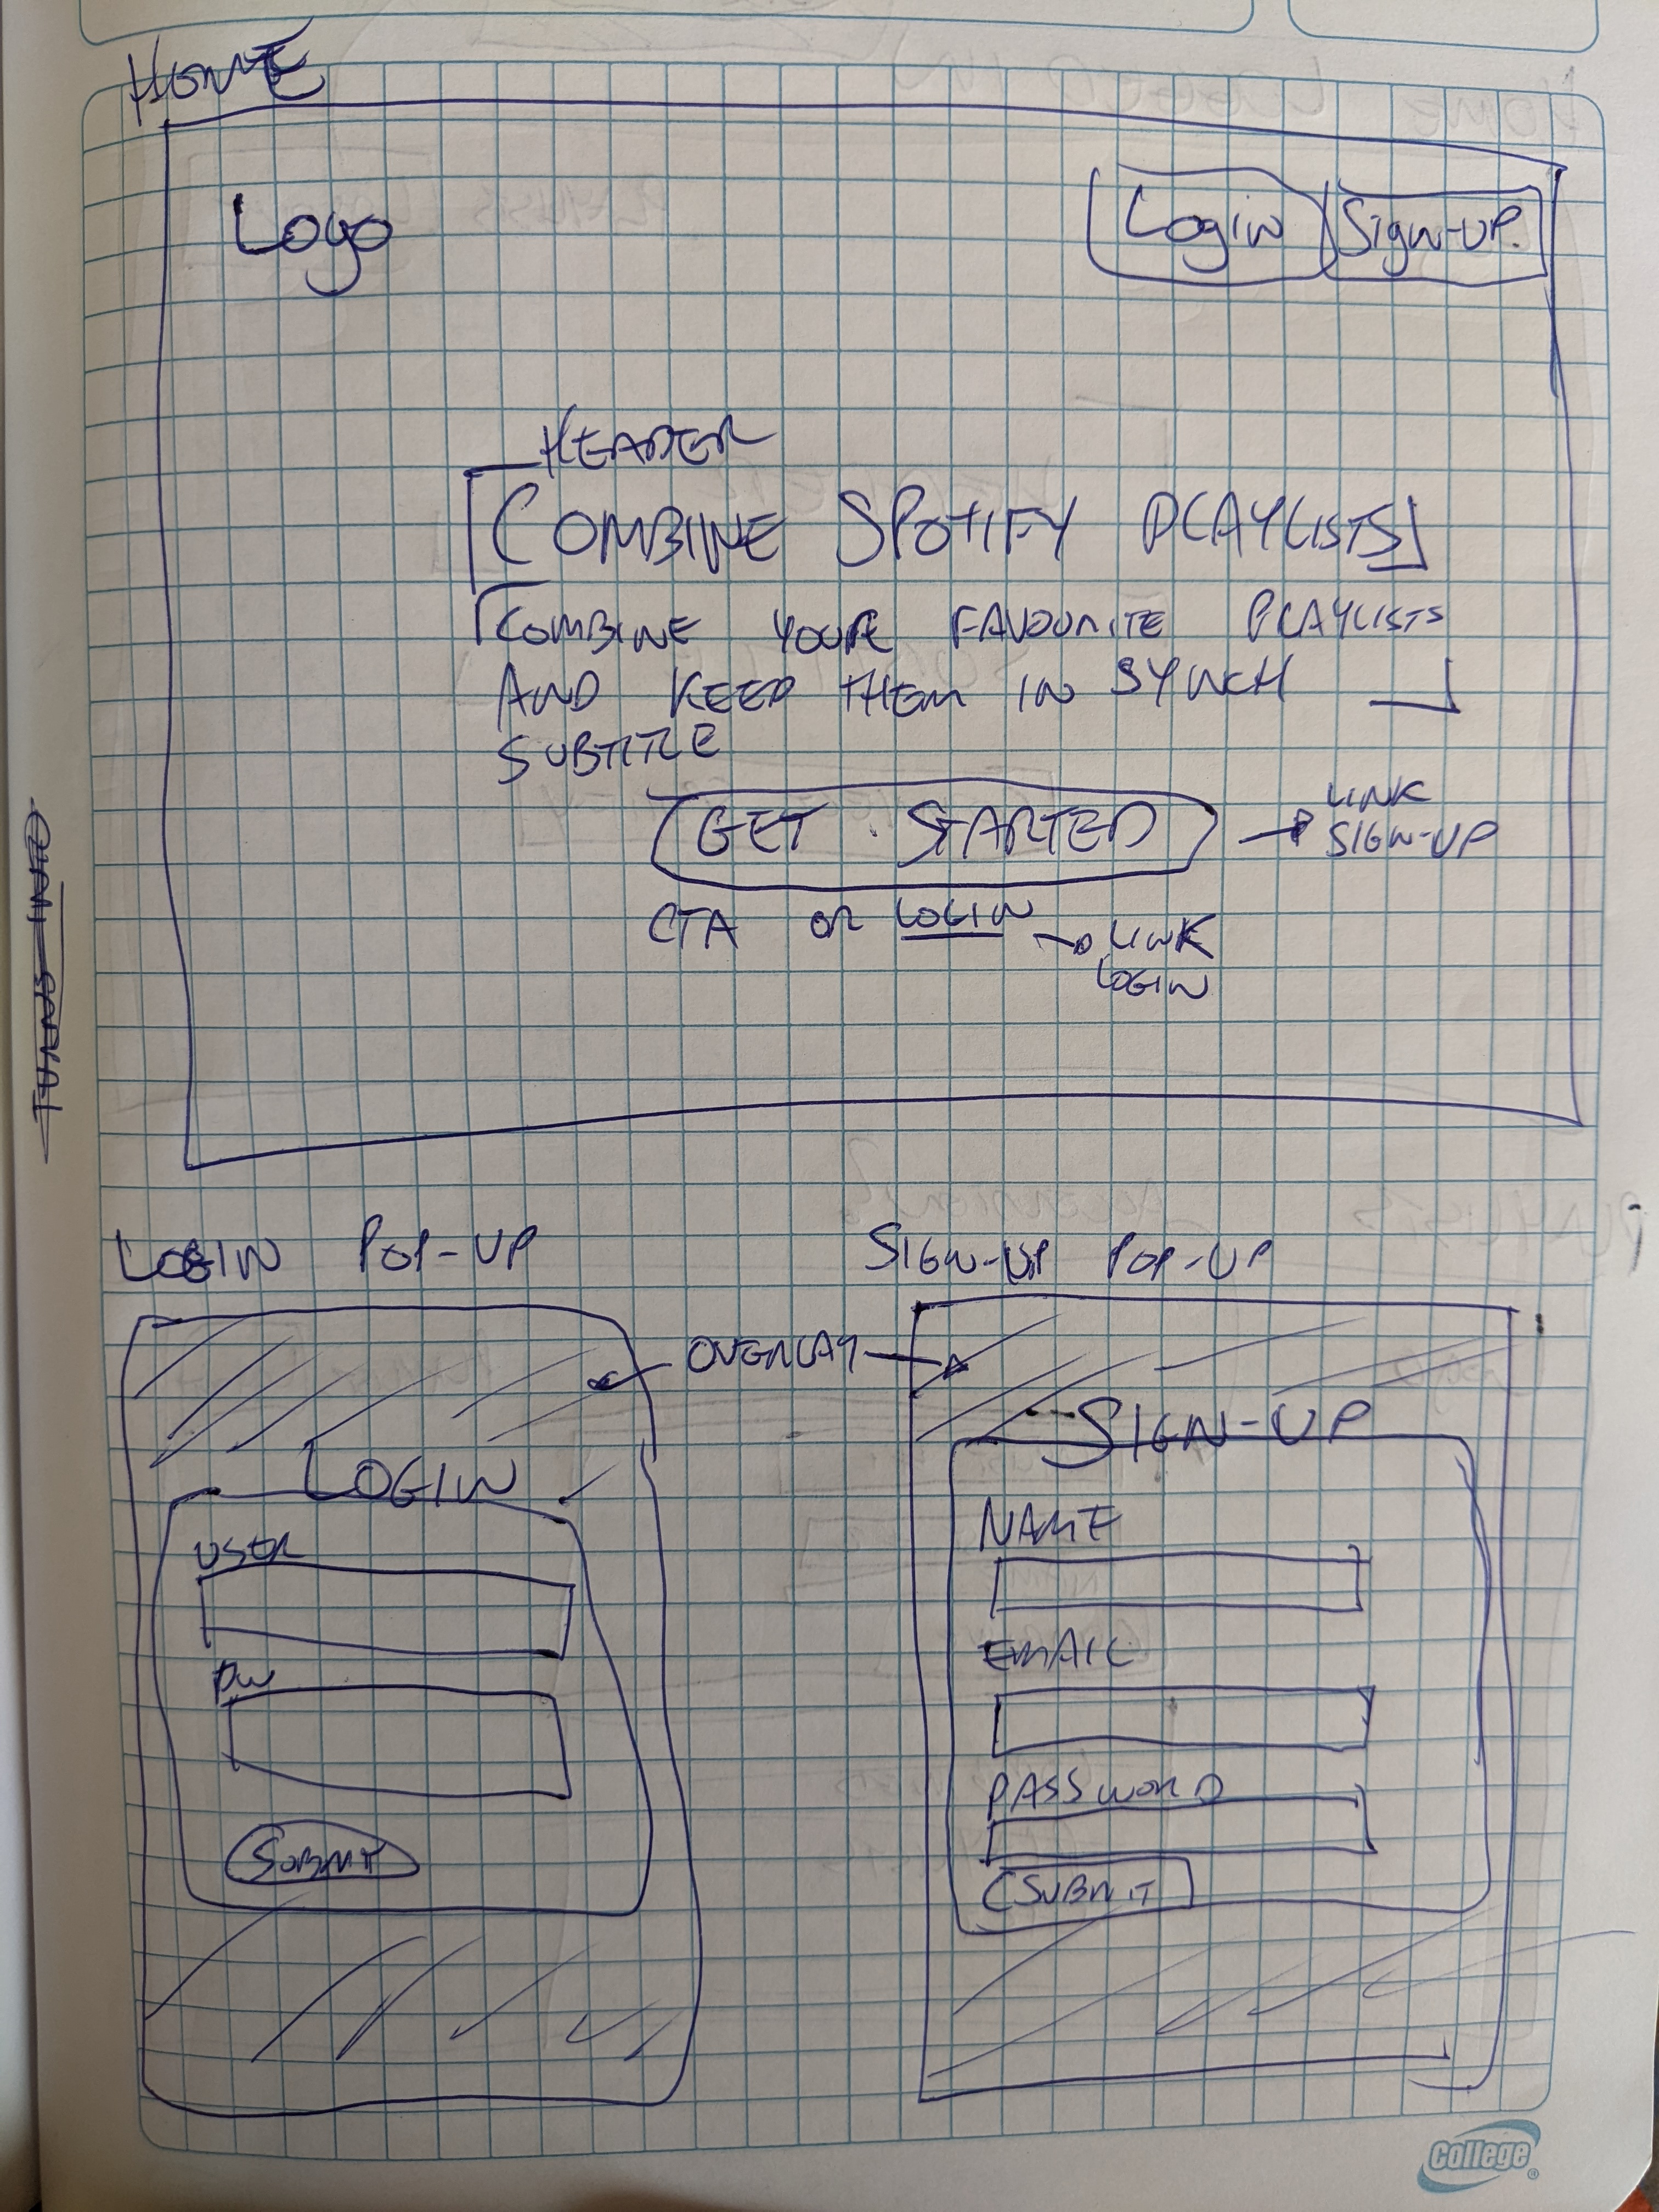 HOME
Logo
Login
Sign-UP.
HEADER
COMBINE SPOTIFY PLAYLISTS
COMBINE YOUR FAVOURITE PLAYLISTS
AND KEEP THEM IN SYNCH
SUBTITLE
GET STARTED
LINK
SIGN-UP
CTA OR LOGIN
LINK
LOGIN
LOGIN POP-UP
SIGN-UP POP-UP
OVERLAY
LOGIN
USER
PW
SUBMIT
SIGN-UP
NAME
EMAIL
PASSWORD
SUBMIT
College